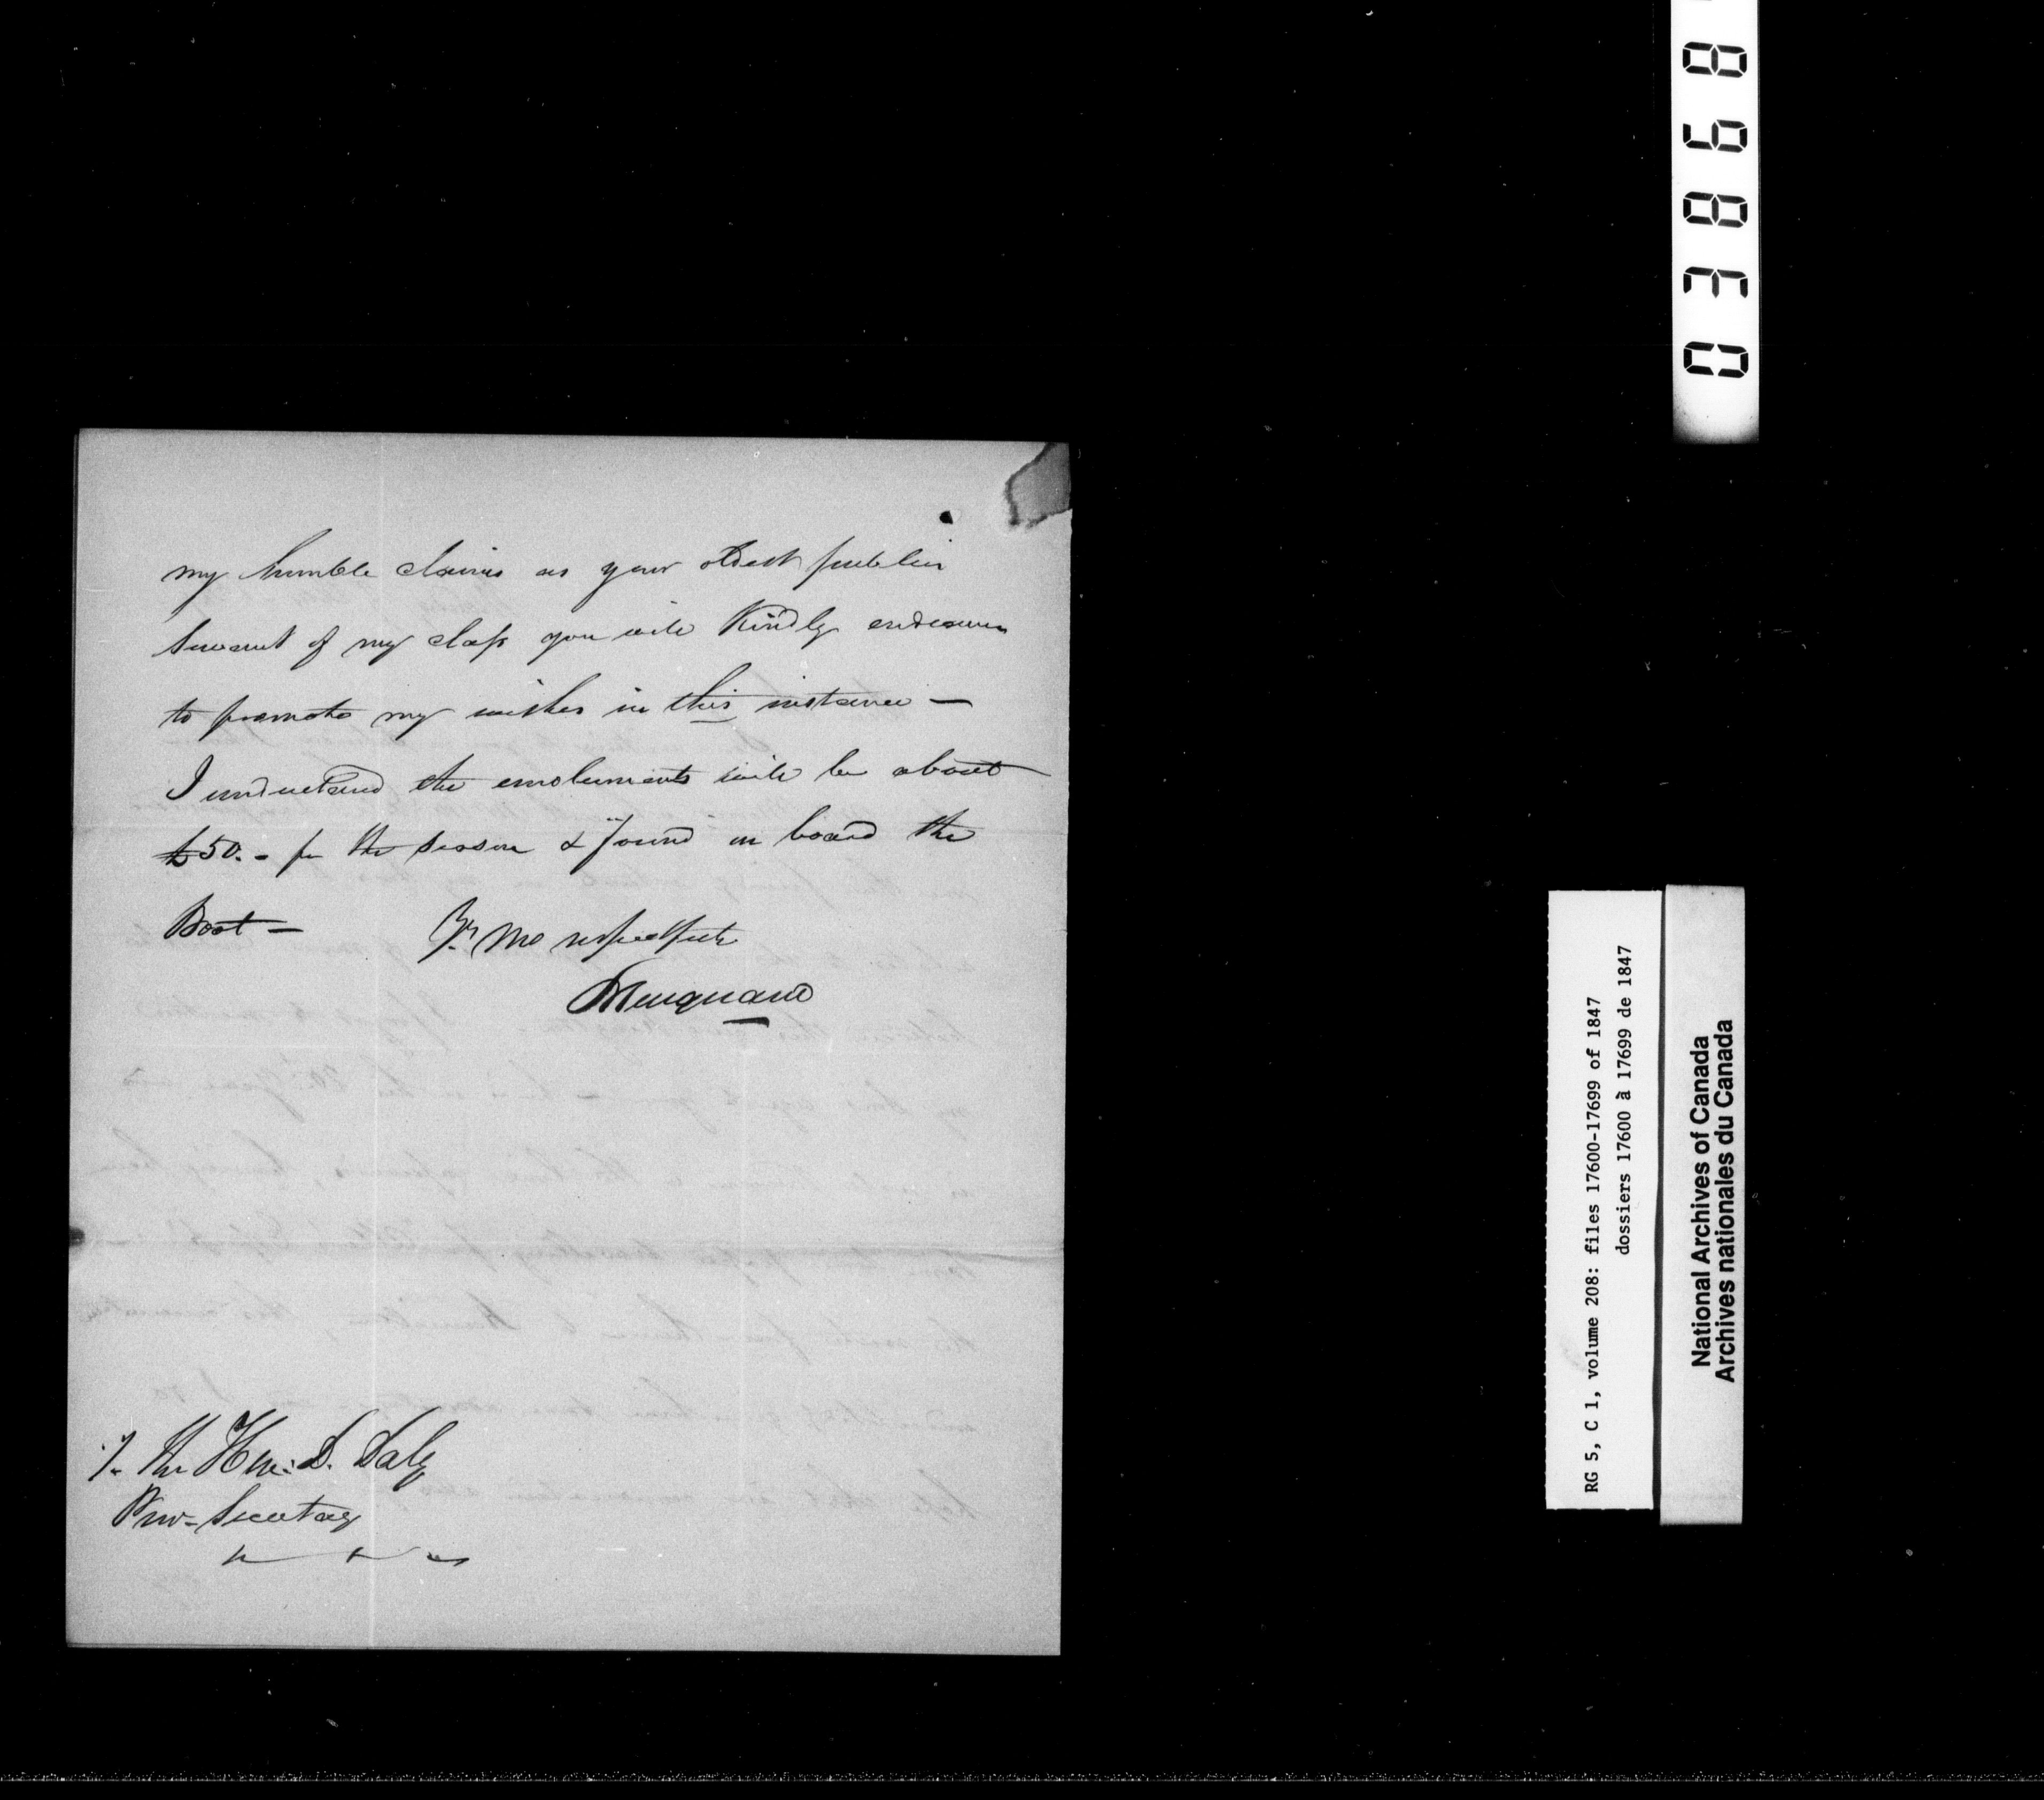 my humble claims as your oldest public
Servant of my class you will Kindly endeavour
to promote my wishes in this instance —
I understand the emoluments will be about
£50. - for the season & "found" on board the
Boat —
Yr. Mo respectfully
To The Hon: D. Daly
Prov- Secretary
03868
RG 5, C 1, volume 208: files 17600-17699 of 1847
dossiers 17600 à 17699 de 1847
National Archives of Canada
Archives nationales du Canada